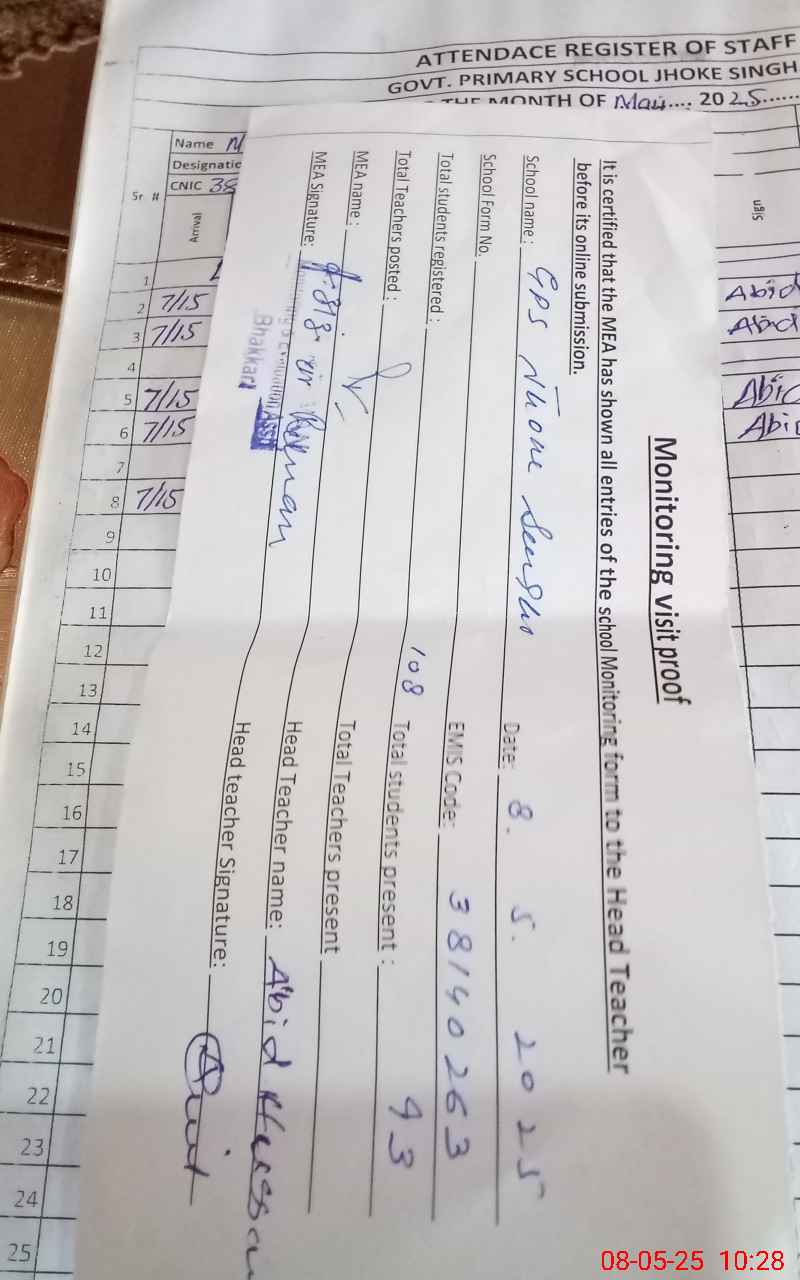 ATTENDACE REGISTER OF STAFF
GOVT. PRIMARY SCHOOL JHOKE SINGH
THE MONTH OF May.... 2025......
Name
Designatic
CNIC 38
Sr #
Arrival
Sign
1
2 7/15 Abid
3 7/15 Abid
4
5 7/15 Abid
6 7/15 Abid
7
8 7/15
9
10
11
12
13
14
15
16
17
18
19
20
21
22
23
24
25
Monitoring visit proof
It is certified that the MEA has shown all entries of the school Monitoring form to the Head Teacher
before its online submission.
School name: GPS Date: 8. 5. 2025
School Form No. EMIS Code: 38140263
Total students registered: 108 Total students present: 93
Total Teachers posted: Total Teachers present
MEA name: Head Teacher name: Abid
MEA Signature: Head teacher Signature:
Bhakkar
08-05-25 10:28